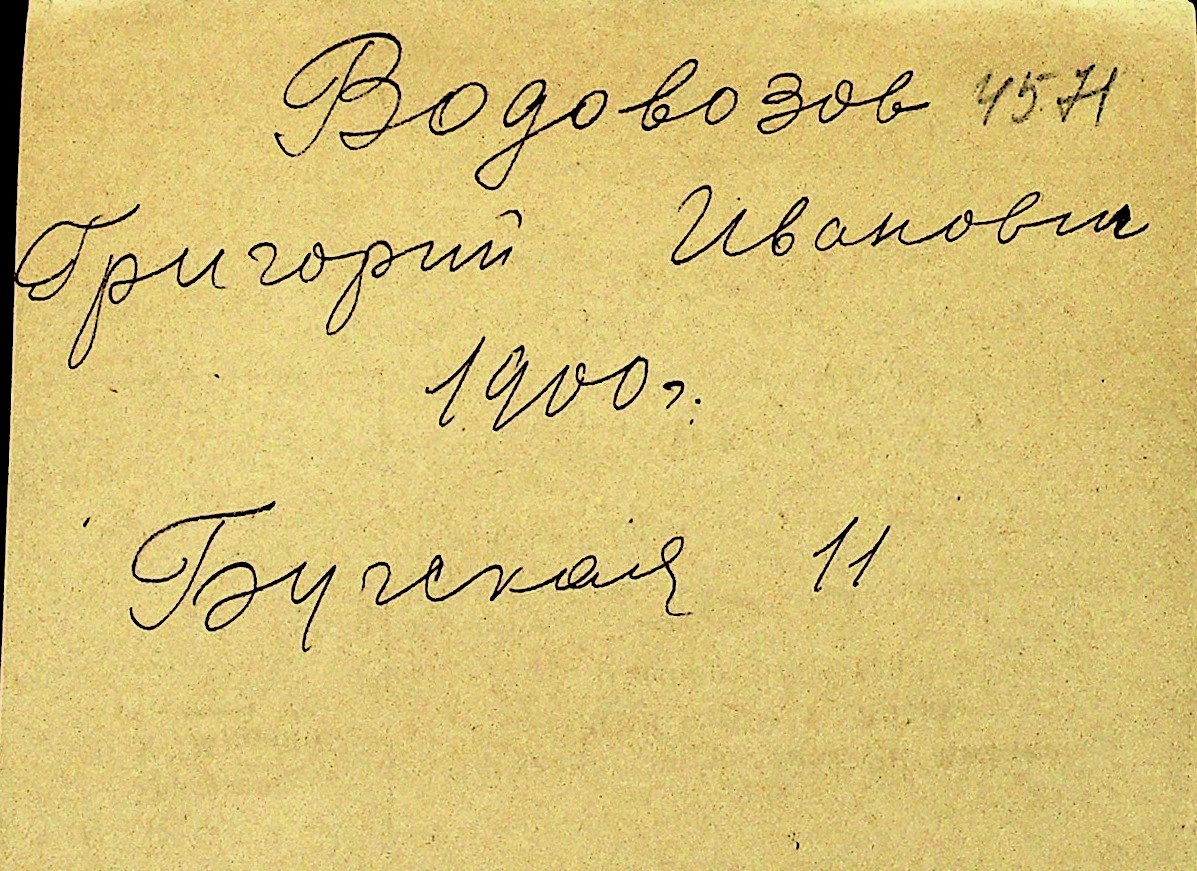 Водовозов 4571
Григорий Иванович
1900г.
Бугская 11